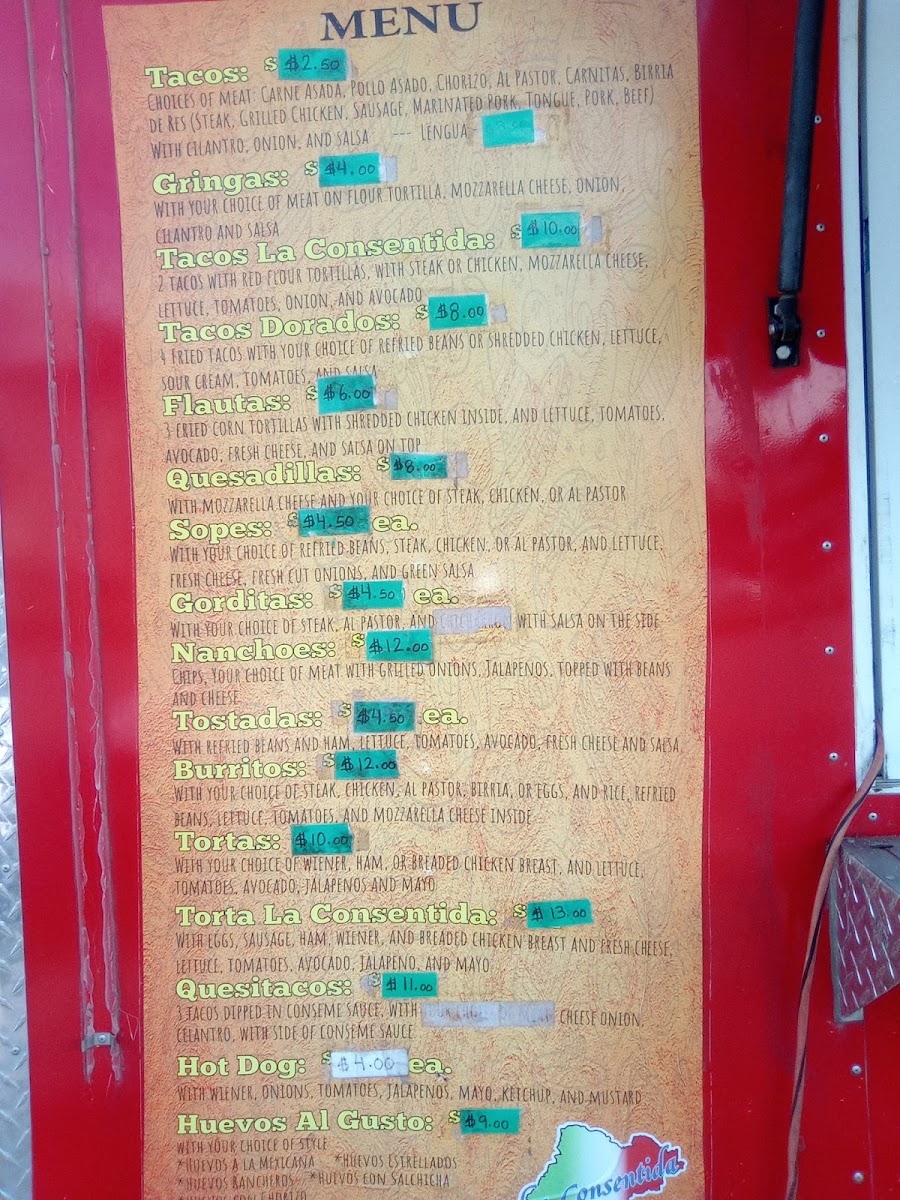 MENU
Tacos: $ $2.50
Choices of meat: Carne Asada, Pollo Asado, Chorizo, Al Pastor, Carnitas, Birria
de Res (Steak, Grilled Chicken, Sausage, Marinated Pork, Tongue, Pork, Beef)
With cilantro, onion, and salsa --- Lengua -
Gringas: $ $4.00
With your choice of meat on flour tortilla, mozzarella cheese, onion,
cilantro and salsa
Tacos La Consentida: $ $10.00
2 tacos with red flour tortillas, with steak or chicken, mozzarella cheese,
lettuce, tomatoes, onion, and avocado
Tacos Dorados: $ $8.00
4 fried tacos with your choice of refried beans or shredded chicken, lettuce,
sour cream, tomatoes, and salsa
Flautas: $ $6.00
3 fried corn tortillas with shredded chicken inside, and lettuce, tomatoes,
avocado, fresh cheese, and salsa on top
Quesadillas: $ $8.00
With mozzarella cheese and your choice of steak, chicken, or al pastor
Sopes: $ $4.50 ea.
With your choice of refried beans, steak, chicken, or al pastor, and lettuce,
fresh cheese, fresh cut onions, and green salsa
Gorditas: $ $4.50 ea.
With your choice of steak, al pastor, and with salsa on the side
Nanchoes: $ $12.00
Chips, your choice of meat with grilled onions, jalapenos, topped with beans
and cheese
Tostadas: $ $4.50 ea.
With refried beans and ham, lettuce, tomatoes, avocado, fresh cheese and salsa
Burritos: $ $12.00
With your choice of steak, chicken, al pastor, birria, or eggs, and rice, refried
beans, lettuce, tomatoes, and mozzarella cheese inside
Tortas: $10.00
With your choice of wiener, ham, or breaded chicken breast, and lettuce,
tomatoes, avocado, jalapenos and mayo
Torta La Consentida: $ $13.00
With eggs, sausage, ham, wiener, and breaded chicken breast and fresh cheese,
lettuce, tomatoes, avocado, jalapeno, and mayo
Quesitacos: $ $11.00
3 tacos dipped in conseme sauce, with your choice of meat cheese onion,
celantro, with side of conseme sauce
Hot Dog: $ $4.00 ea.
With wiener, onions, tomatoes, jalapenos, mayo, ketchup, and mustard
Huevos Al Gusto: $ $9.00
with your choice of style
*Huevos a la Mexicana *Huevos Estrellados
*Huevos Rancheros *Huevos con Salchicha
*Huevos con Chorizo
Consentida